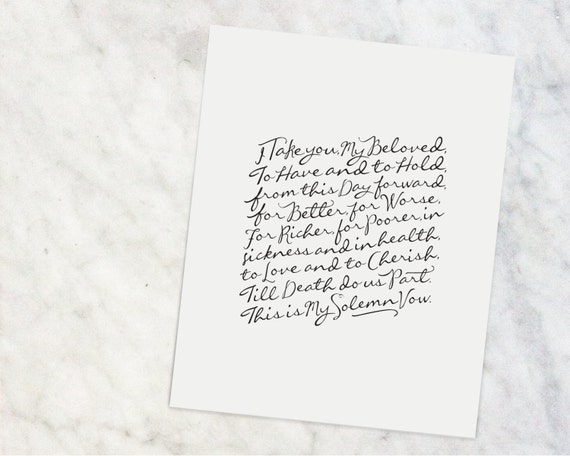 I Take you, My Beloved,
To Have and to Hold,
from this Day forward,
for Better, for Worse,
For Richer, for Poorer, in
sickness and in health,
to Love and to Cherish,
Till Death do us Part.
This is My Solemn Vow.